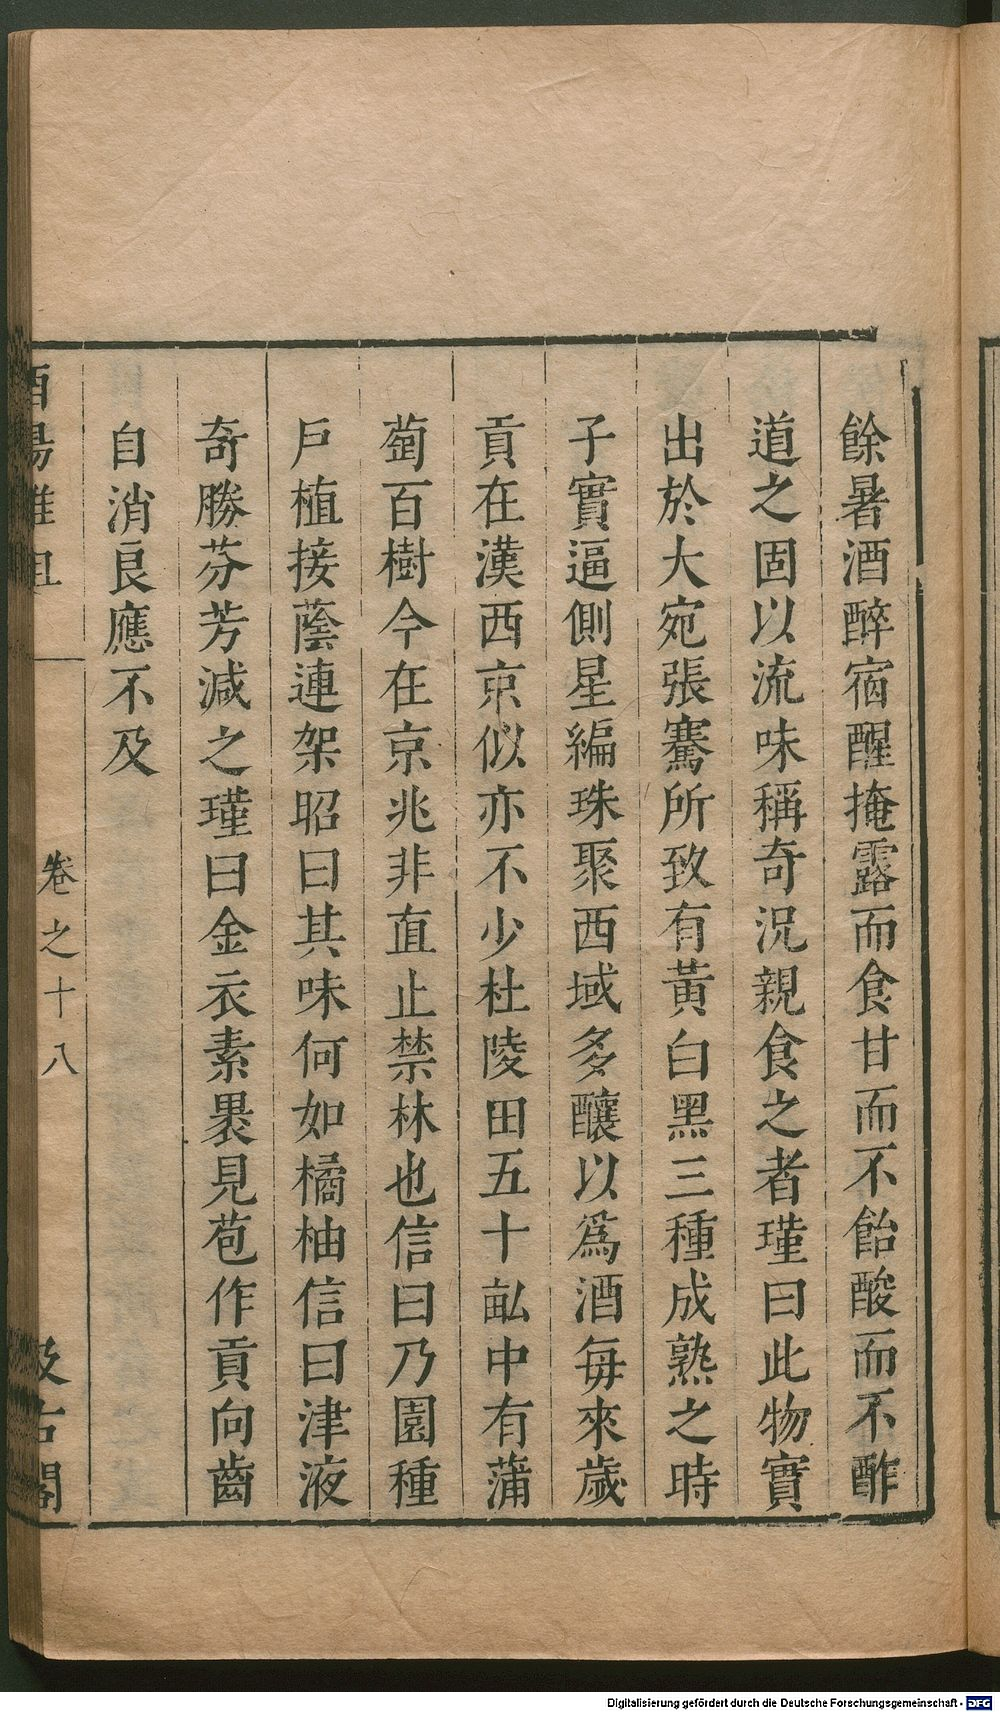 餘暑酒醉宿醒掩露而食甘而不飴酸而不酢
道之固以流味稱奇況親食之者瑾曰此物實
出於大宛張騫所致有黃白黑三種成熟之時
子實逼側星編珠聚西域多釀以爲酒每來歲
貢在漢西京似亦不少杜陵田五十畝中有蒲
萄百樹今在京兆非直止禁林也信曰乃園種
戶植接蔭連架昭曰其味何如橘柚信曰津液
奇勝芬芳減之瑾曰金衣素裹見苞作貢向齒
自消良應不及
酉陽雜俎
卷之十八
汲古閣
Digitalisierung gefördert durch die Deutsche Forschungsgemeinschaft - DFG